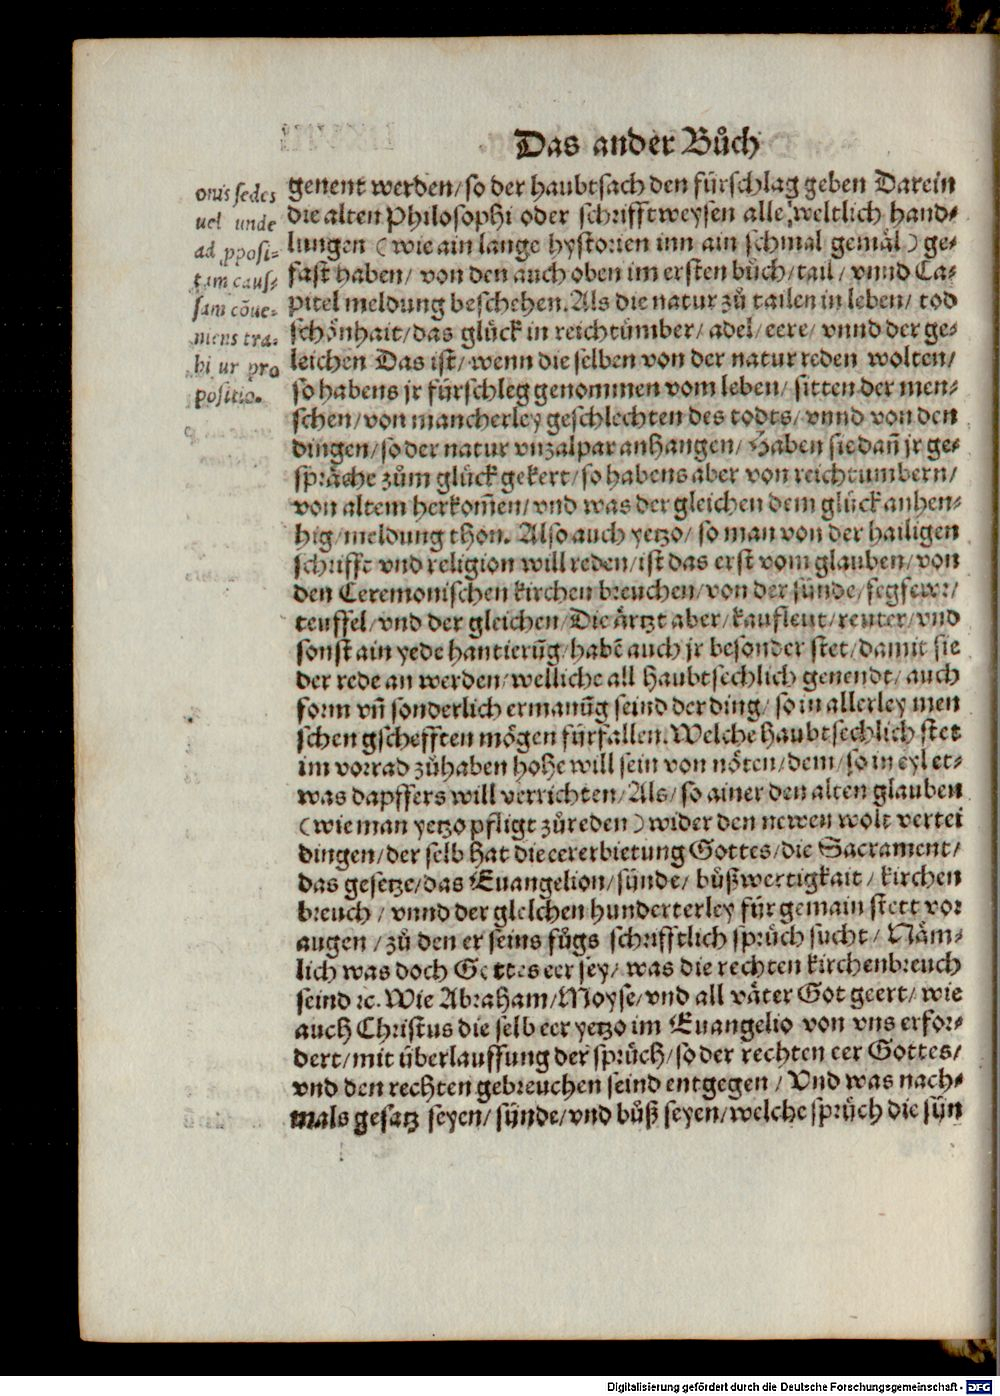 Das ander Bůch
onis sedes
uel unde
ad pposi-
tam caus-
sam cōue-
niens tra-
hitur pro
positio.
genent werden/ so der haubtsach den fürschlag geben Darein
die alten Philosophi oder schrifftweysen alle weltlich hand-
lungen (wie ain lange hystorien inn ain schmal gemäl) ge-
fast haben/ von den auch oben im ersten bůch/ tail/ vnnd Ca-
pitel meldung beschehen. Als die natur zů tailen in leben/ tod
schönhait/ das glück in reichtůmber/ adel/ eere/ vnnd der ge-
leichen Das ist/ wenn die selben von der natur reden wolten/
so habens jr fürschleg genommen vom leben/ sitten der men-
schen/ von mancherley geschlechten des todts/ vnnd von den
dingen/ so der natur vnzalpar anhangen/ Haben sie dañ jr ge-
spräche zům glück gekert/ so habens aber von reichtumbern/
von altem herkom̃en/ vnd was der gleichen dem glück anhen-
hig/ meldung thon. Also auch yetzo/ so man von der hailigen
schrifft vnd religion will reden/ ist das erst vom glauben/ von
den Ceremonischen kirchen breuchen/ von der sünde/ fegfewr/
teuffel/ vnd der gleichen/ Die ärtzt aber/ kaufleut/ reuter/ vnd
sonst ain yede hantierūg/ habē auch jr besonder stet/ damit sie
der rede an werden/ welliche all haubtsechlich genendt/ auch
form vñ sonderlich ermanūg seind der ding/ so in allerley men
schen gschefften mögen fürfallen. Welche haubtsechlich stet
im vorrad zůhaben hohe will sein von nöten/ dem/ so in eyl et-
was dapffers will verrichten/ Als/ so ainer den alten glauben
(wie man yetzo pfligt zůreden) wider den newen wolt vertei
dingen/ der selb hat die eererbietung Gottes/ die Sacrament/
das gesetze/ das Euangelion/ sünde/ bůßwertigkait/ kirchen
breuch/ vnnd der gleichen hunderterley für gemain stett vor
augen/ zů den er seins fůgs schrifftlich sprüch sucht/ Näm-
lich was doch Gottes eer sey/ was die rechten kirchenbreuch
seind ꝛc. Wie Abraham/ Moyse/ vnd all väter Got geert/ wie
auch Christus die selb eer yetzo im Euangelio von vns erfor-
dert/ mit überlauffung der sprüch/ so der rechten eer Gottes/
vnd den rechten gebreuchen seind entgegen/ Vnd was nach-
mals gesatz seyen/ sünde/ vnd bůß seyen/ welche sprüch die sün
Digitalisierung gefördert durch die Deutsche Forschungsgemeinschaft - DFG